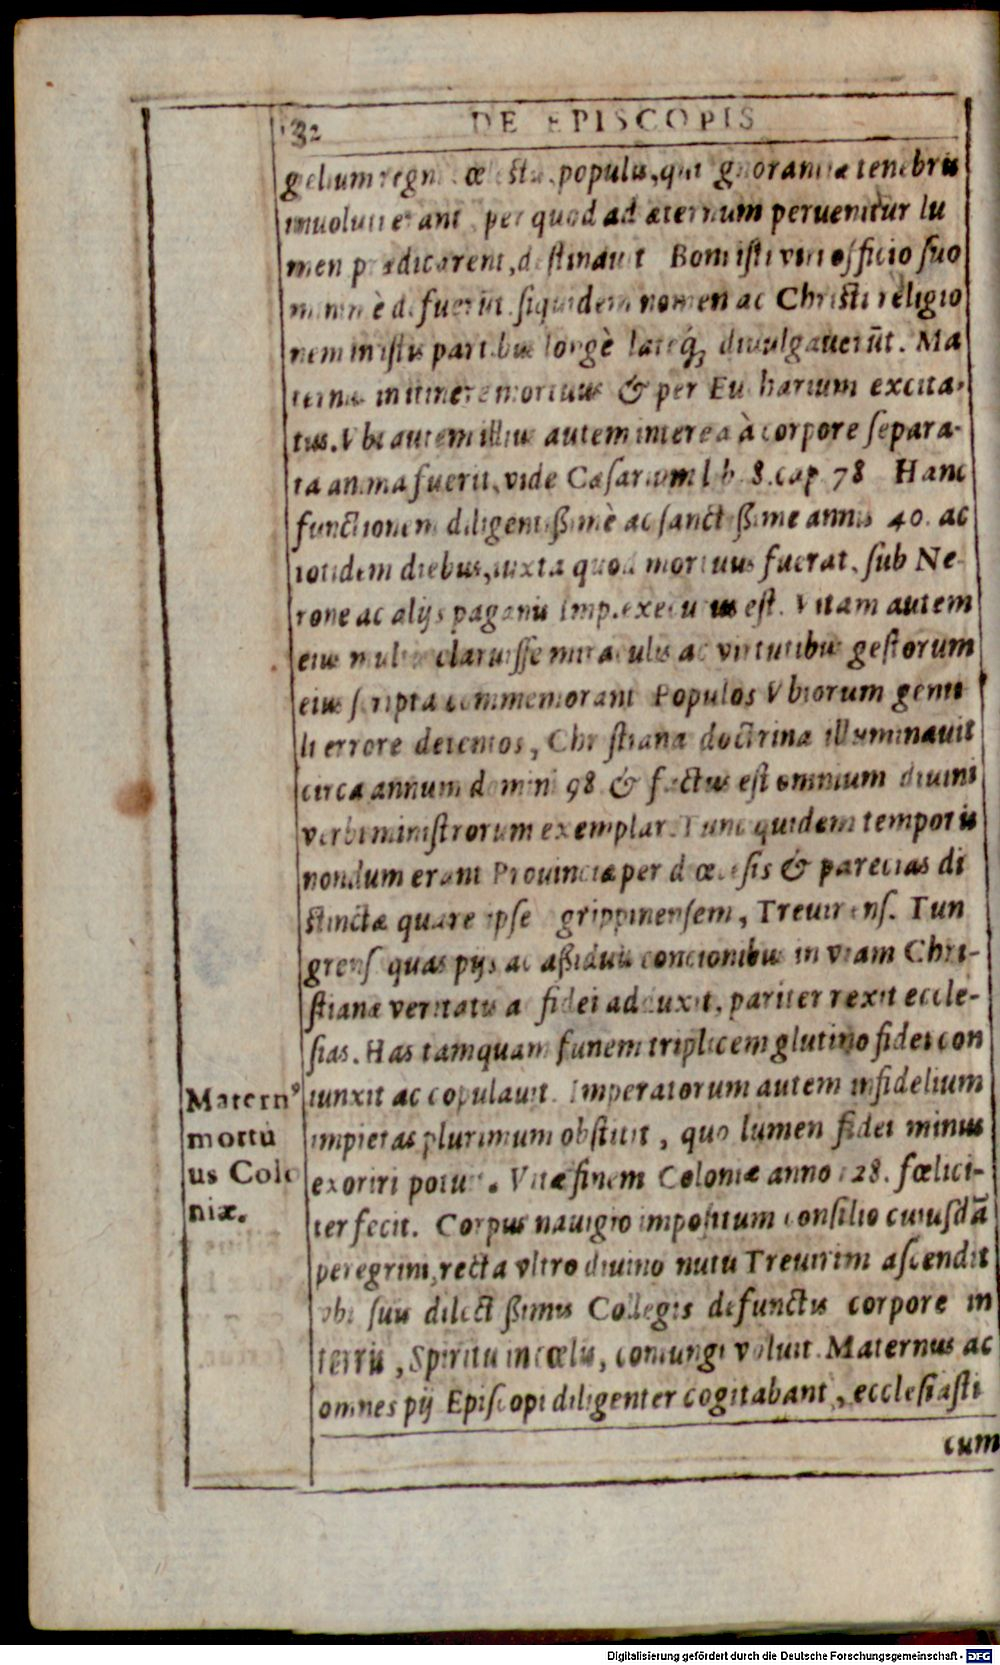 132 DE EPISCOPIS
gelium regni cœlestis populis, qui ignorantiæ tenebris
inuoluti erant, per quod ad æternum peruenitur lu
men prædicarent, destinauit Boni isti viri officio suo
minimè defuerūt. siquidem nomen ac Christi religio
nem in istis partibus longè lateq́; diuulgauerūt. Ma
ternus in itinere mortuus & per Eucharium excita-
tus. Vbi autem illius autem interea à corpore separa-
ta anima fuerit, vide Cæsarium lib. 8. cap. 78 Hanc
functionem diligentißimè ac sanctißime annis 40. ac
totidem diebus, iuxta quod mortuus fuerat, sub Ne-
rone ac alijs paganis Imp. executus est. Vitam autem
eius multis claruisse miraculis ac virtutibus gestorum
eius scripta commemorant Populos Vbiorum genti
li errore detentos, Christiana doctrina illuminauit
circa annum domini 98 & factus est omnium diuini
verbi ministrorum exemplar. Tunc quidem temporis
nondum erant Prouinciæ per diœcesis & parecias di
stinctæ quare ipse Agrippinensem, Treuirens. Tun
grens quas pijs ac aßiduis concionibus in viam Chri-
stianæ veritatis ac fidei adduxit, pariter rexit eccle-
sias. Has tamquam funem triplicem glutino fidei con
iunxit ac copulauit. Imperatorum autem infidelium
impietas plurimum obstitit, quo lumen fidei minus
exoriri potuit. Vitæ finem Coloniæ anno 128. fœlici-
ter fecit. Corpus nauigio impositum consilio cuiusdā
peregrini, recta vltro diuino nutu Treuirim ascendit
vbi suis dilectißimis Collegis defunctis corpore in
terris, Spiritu in cœlis, coniungi voluit. Maternus ac
omnes pij Episcopi diligenter cogitabant, ecclesiasti
cum
Matern⁹
mortu
us Colo
niæ.
Digitalisierung gefördert durch die Deutsche Forschungsgemeinschaft - DFG